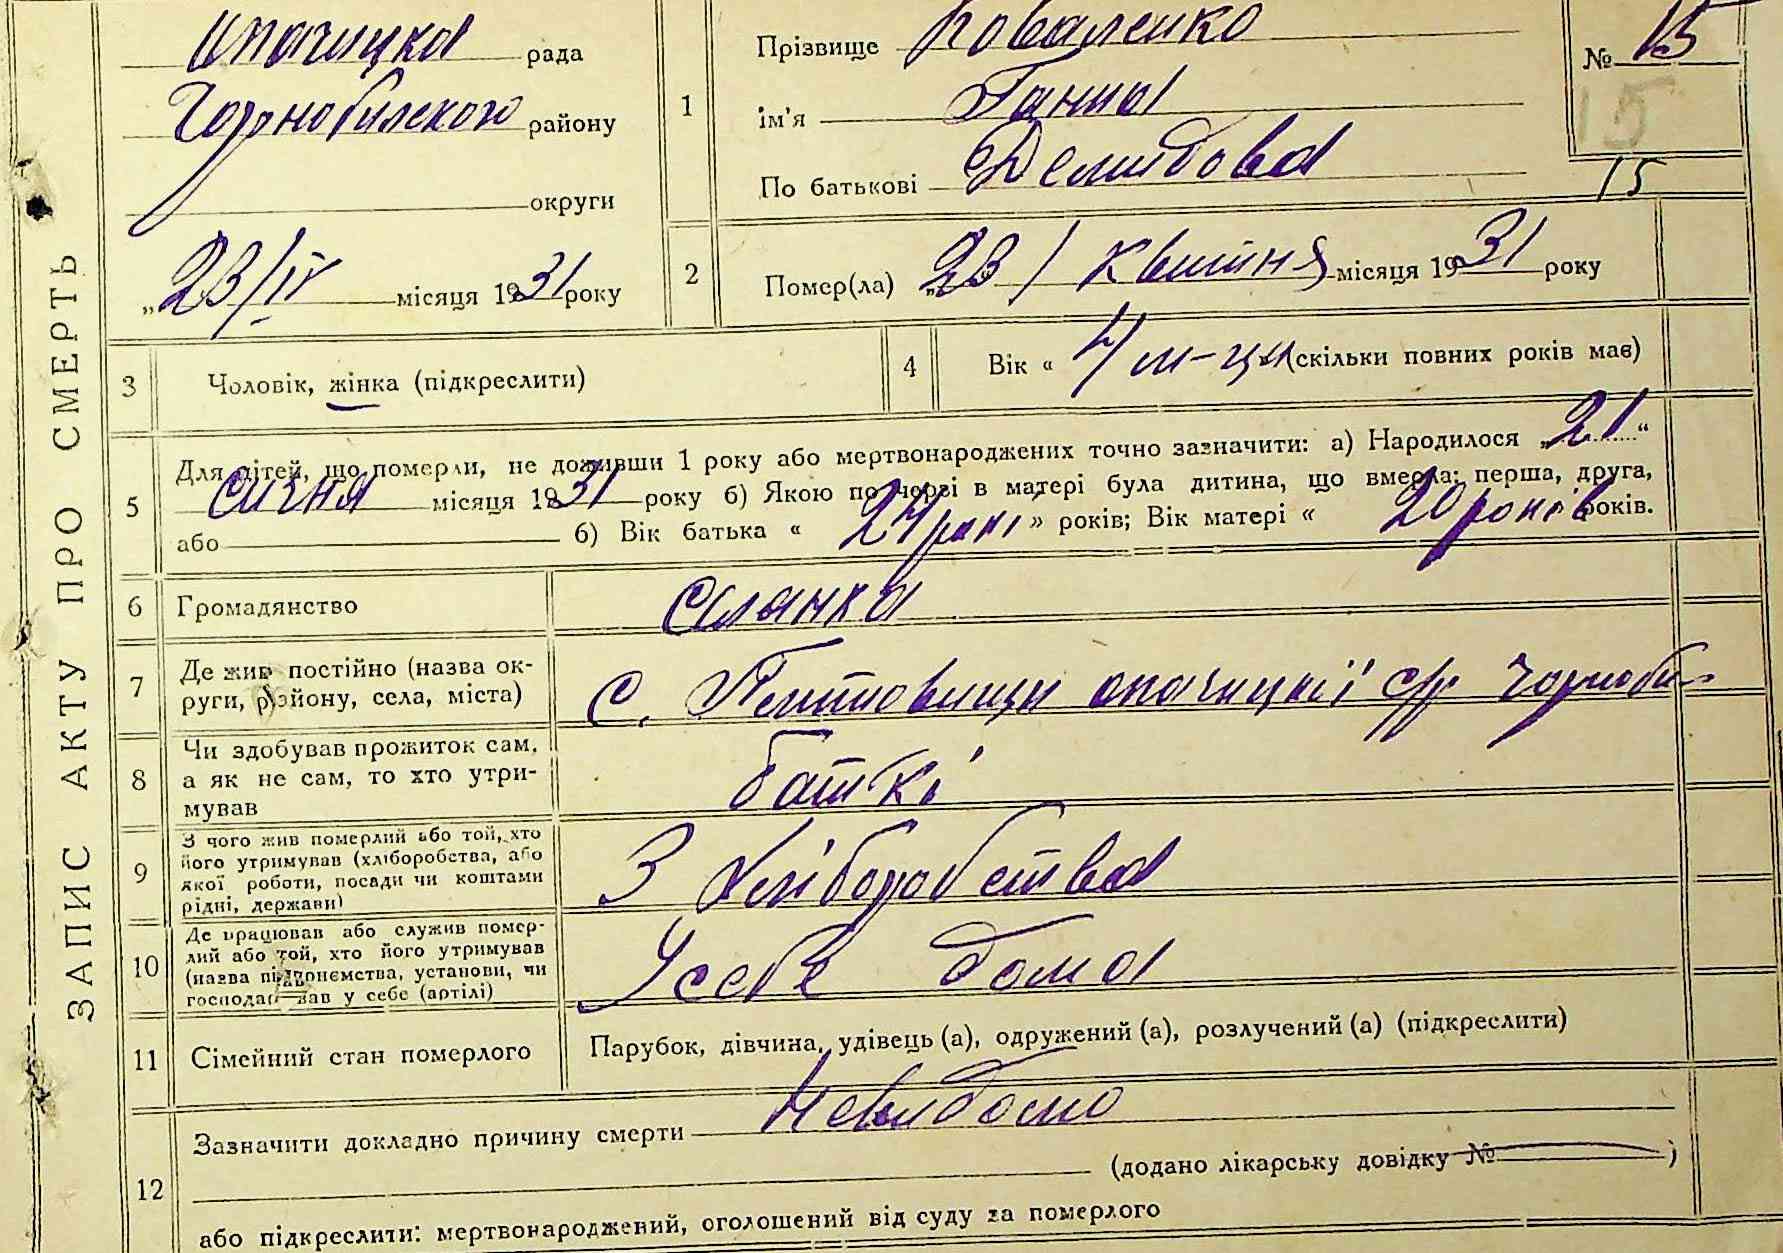 ЗАПИС АКТУ ПРО СМЕРТЬ
Опачицка рада
Чорнобилского району
округи
„23/IV місяця 1931 року
1
Прізвище Коваленко
ім'я Ганна
По батькові Демидова
№ 15
15
15
2
Помер(ла) „23 / квітня місяця 1931 року
3
Чоловік, жінка (підкреслити)
4
Вік « 4 м-ци (скільки повних років має)
5
Для дітей, що померли, не доживши 1 року або мертвонароджених точно зазначити: а) Народилося „21“
Січня місяця 1931 року б) Якою по черзі в матері була дитина, що вмерла: перша, друга,
або б) Вік батька « 24 рокі » років; Вік матері « 20 років років.
6
Громадянство
Силянка
7
Де жив постійно (назва ок-
руги, району, села, міста)
с. опачицкої с/р Чорноби
8
Чи здобував прожиток сам,
а як не сам, то хто утри-
мував
баткі
9
З чого жив померлий або той, хто
його утримував (хліборобства, або
якої роботи, посади чи коштами
рідні, держави)
З хліборобства
10
Де працював або служив помер-
лий або той, хто його утримував
(назва підприємства, установи, чи
господарював у себе (артілі)
У себе дома
11
Сімейний стан померлого
Парубок, дівчина, удівець (а), одружений (а), розлучений (а) (підкреслити)
12
Зазначити докладно причину смерти Невидомо
(додано лікарську довідку № )
або підкреслити: мертвонароджений, оголошений від суду за померлого